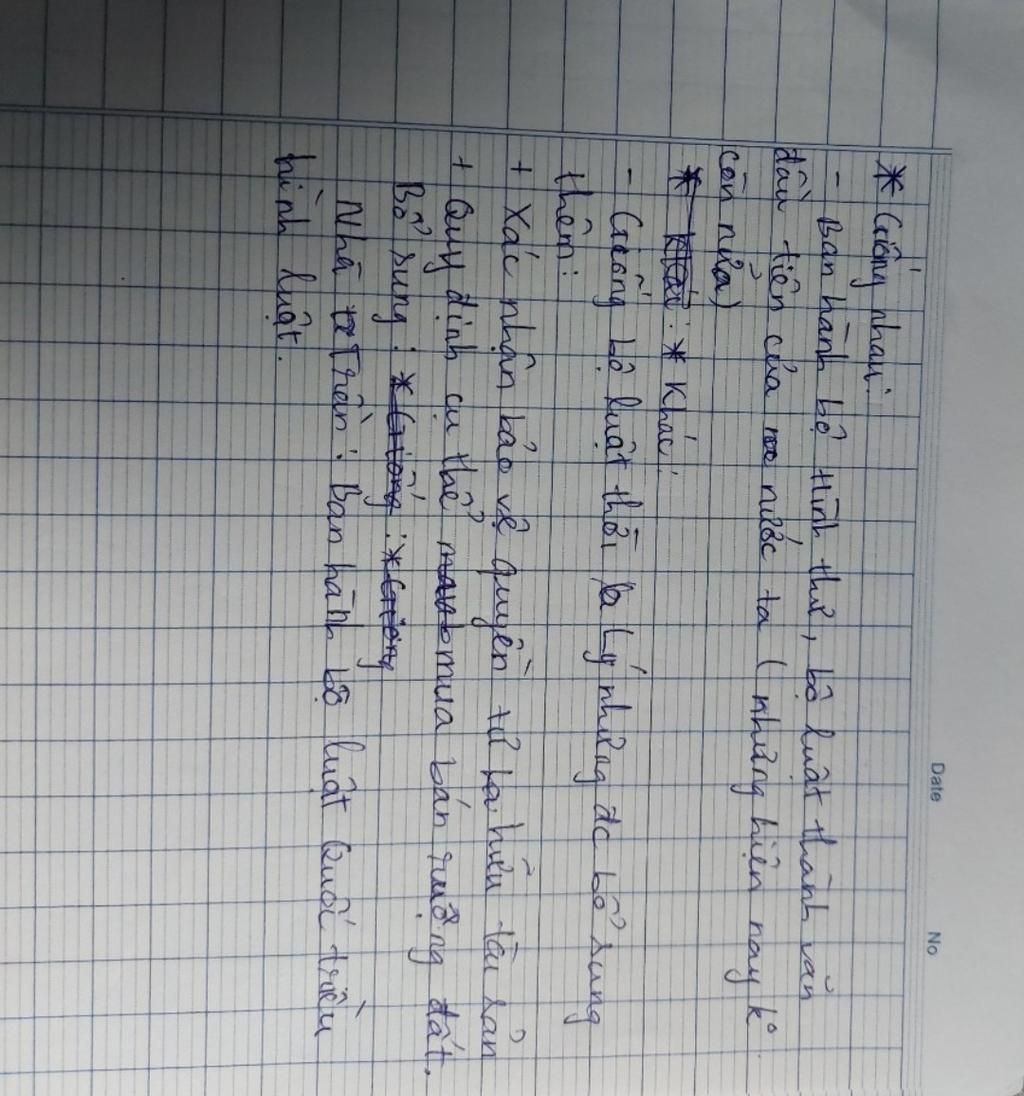 Date No
* Giống nhau:
- Ban hành bộ Hình thư, bộ luật thành văn
đầu tiên của nước ta (nhưng hiện nay k°
còn nữa)
* Khác: * Khác:
- Giống bộ luật thời Lý nhưng đc bổ sung
thêm:
+ Xác nhận bảo vệ quyền tư hữu tài sản
+ Quy định cụ thể mua bán ruộng đất.
Bổ sung: * Giống: * Giống
Nhà Trần: Ban hành bộ luật Quốc triều
hình luật.